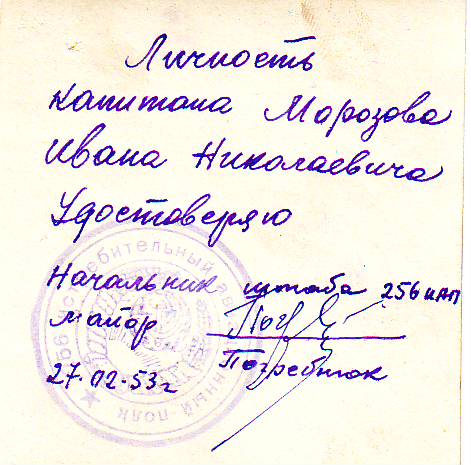 Личность
капитана Морозова
Ивана Николаевича
Удостоверяю
Начальник штаба 256 иап
майор
Погребняк
27.02.53г
256 истребительный авиационный полк